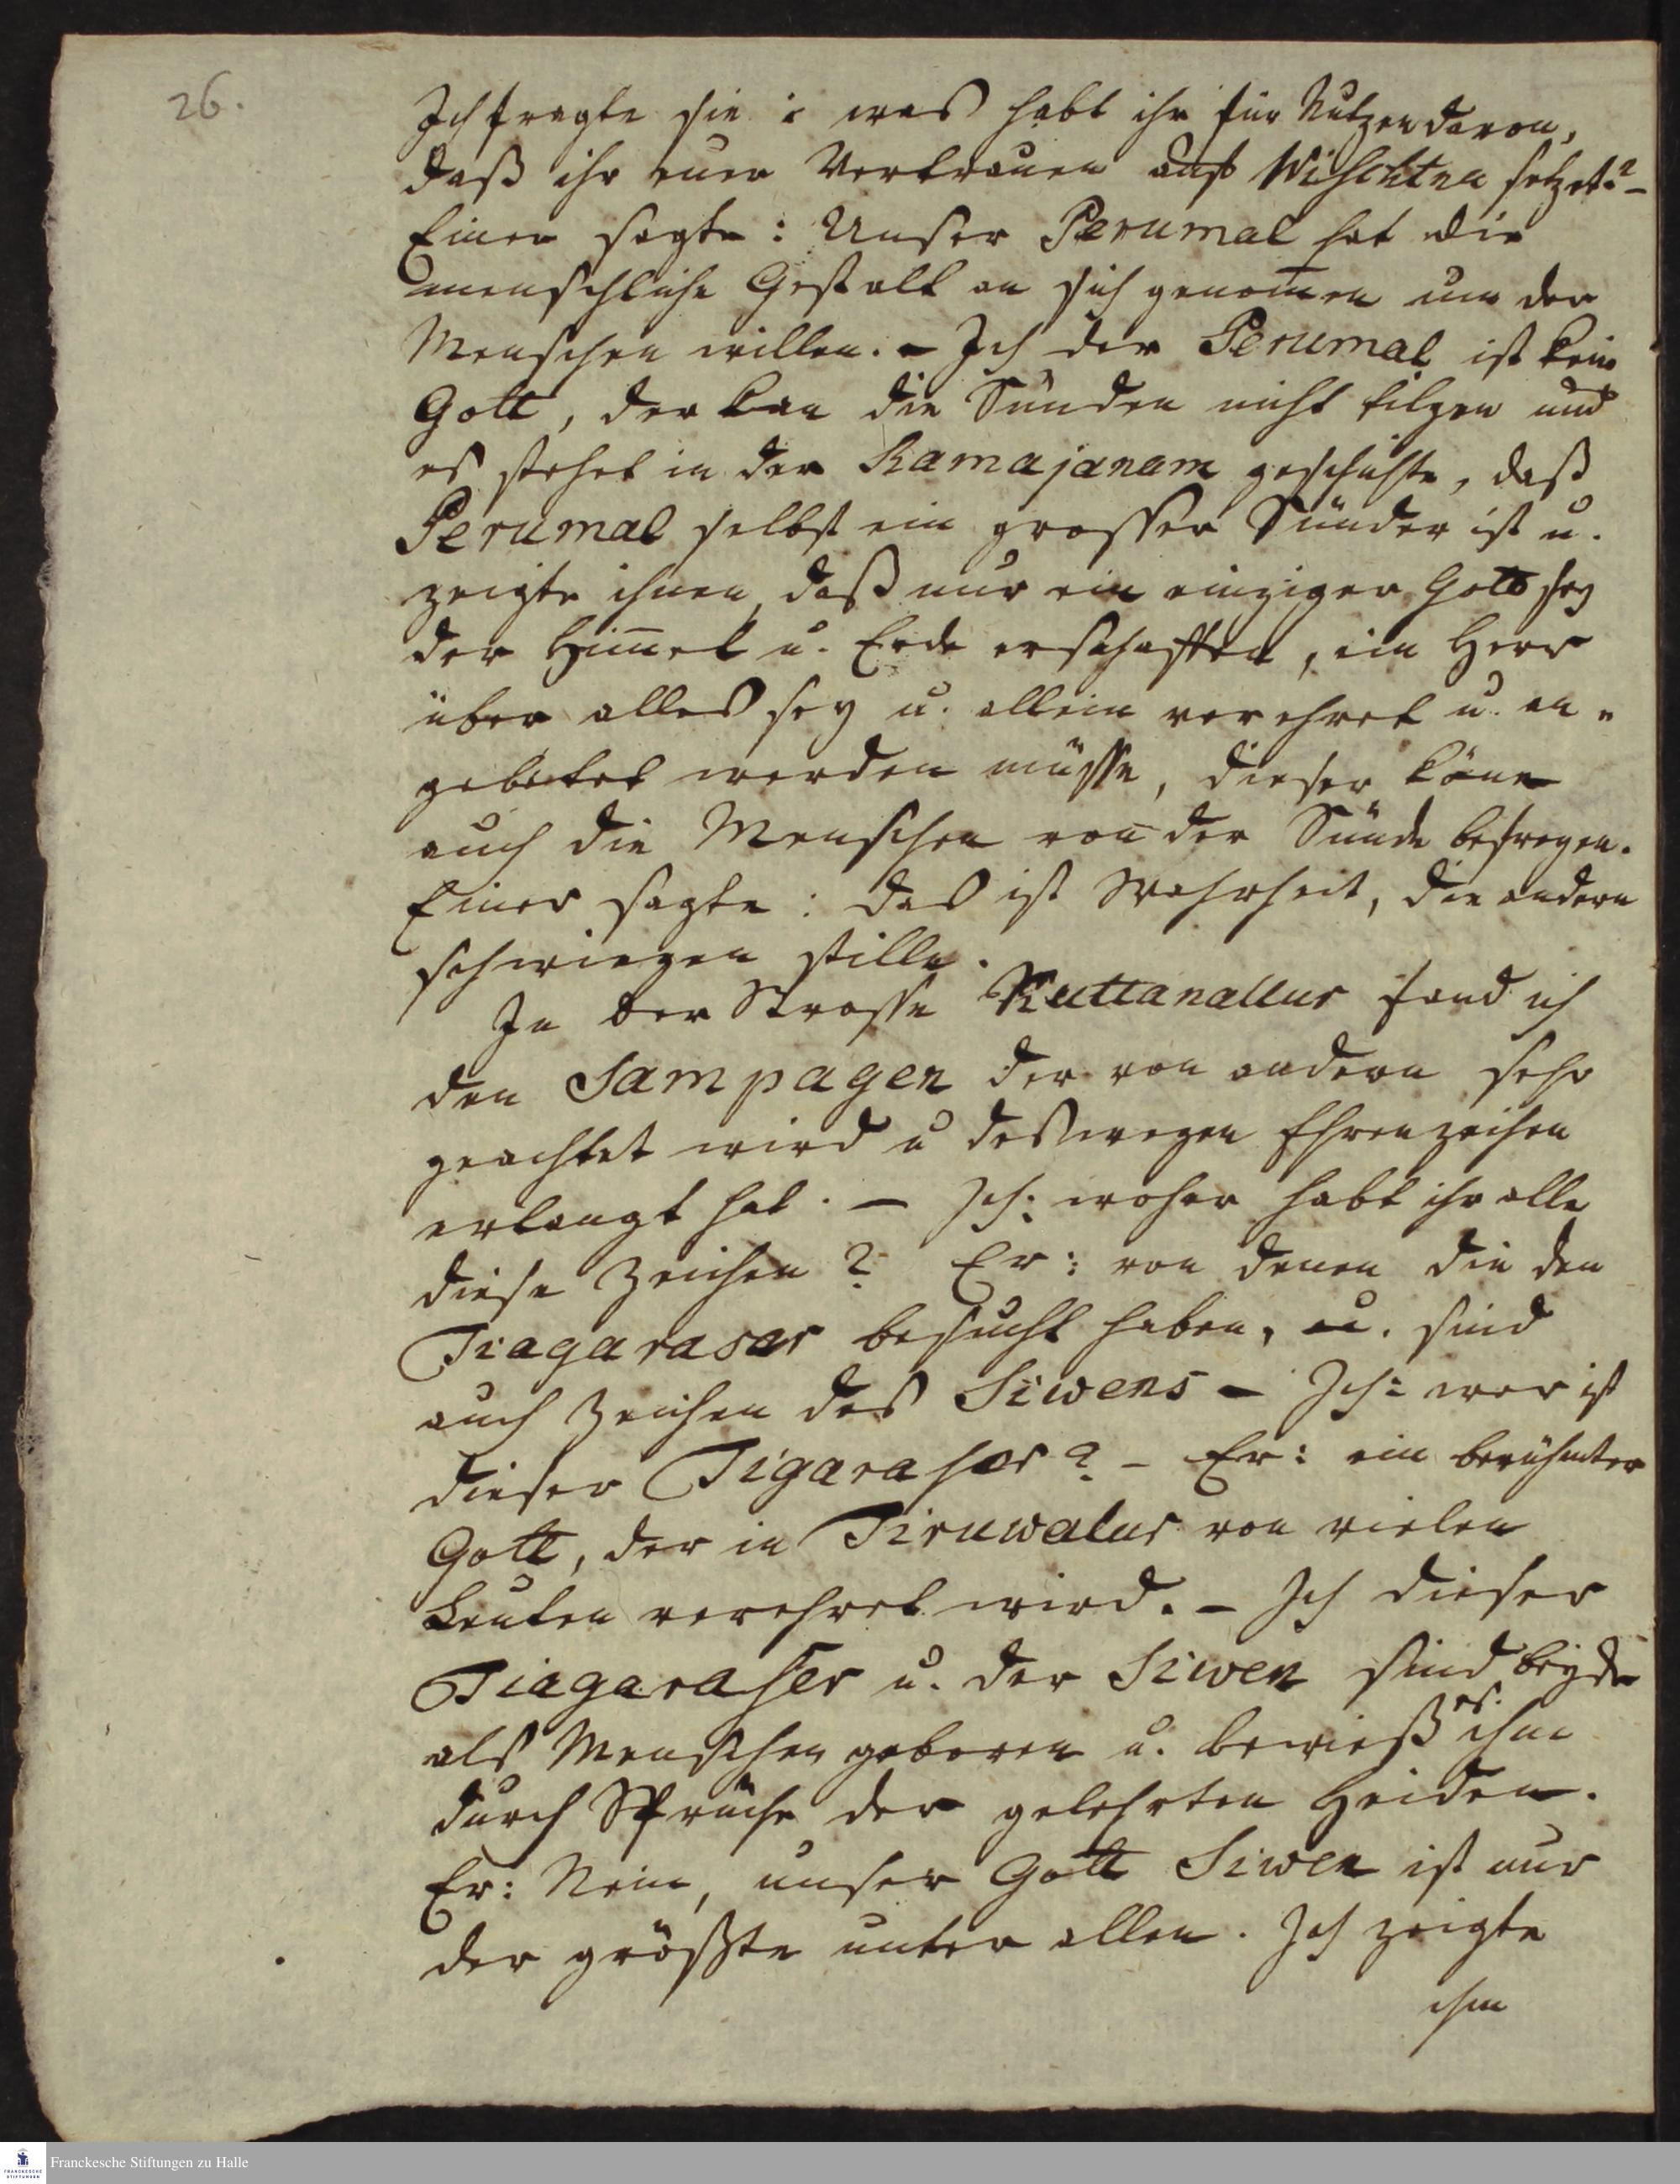 26.
Ich fragte sie : was habt ihr für Nutzen davon,
daß ihr euer Vertrauen auf Wischtnu setzet? –
Einer sagte : Unser Perumal hat die
menschliche Gestalt an sich genom̅en um der
Menschen willen. – Ich der Perumal ist kein
Gott, der kan die Sünden nicht tilgen und
es stehet in der Ramajanam geschichte, daß
Perumal selbst ein grosser Sünder ist u.
zeigte ihnen, daß nur ein einziger Gott sey
der Him̅el u. Erde erschaffen, ein Herr
über alles sey u. allein verehret u. an-
gebetet werden müsse, dieser köne
auch die Menschen von der Sünde befreyen.
Einer sagte : das ist Wahrheit, die andern
schwiegen stille.
In der Strasse Kuttanallur fand ich
den Sampagen der von andern sehr
geachtet wird u deßwegen Ehrenzeichen
erlangt hat. – Ich: woher habt ihr alle
diese Zeichen ? Er : von denen die den
Tiagaraser besucht haben, u. sind
auch Zeichen des Siwens – Ich: wer ist
dieser Tigaraser ? – Er : ein berühmter
Gott, der in Tiruwalur von vielen
Leuten verehret wird. – Ich dieser
Tiagaraser u. der Siwen sind beyde
als Menschen geboren u. bewieß es ihm
durch Sprüche der gelehrten Heiden.
Er : Nein, unser Gott Siwen ist nur
der größte unter allen. Ich zeigte
ihm
Franckesche Stiftungen zu Halle
FRANCKESCHE STIFTUNGEN